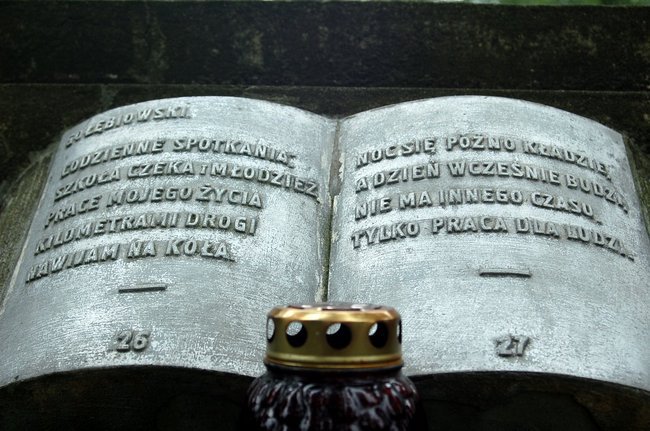 GOŁĘBIOWSKI.
CODZIENNE SPOTKANIA:
SZKOŁA CZEKA I MŁODZIEŻ,
PRACE MOJEGO ŻYCIA
KILOMETRAMI DROGI
NAWIJAM NA KOŁA.
26
NOC SIĘ PÓŹNO KŁADZIE,
A DZIEŃ WCZEŚNIE BUDZI,
NIE MA INNEGO CZASO,
TYLKO PRACA DLA LUDZI.
27